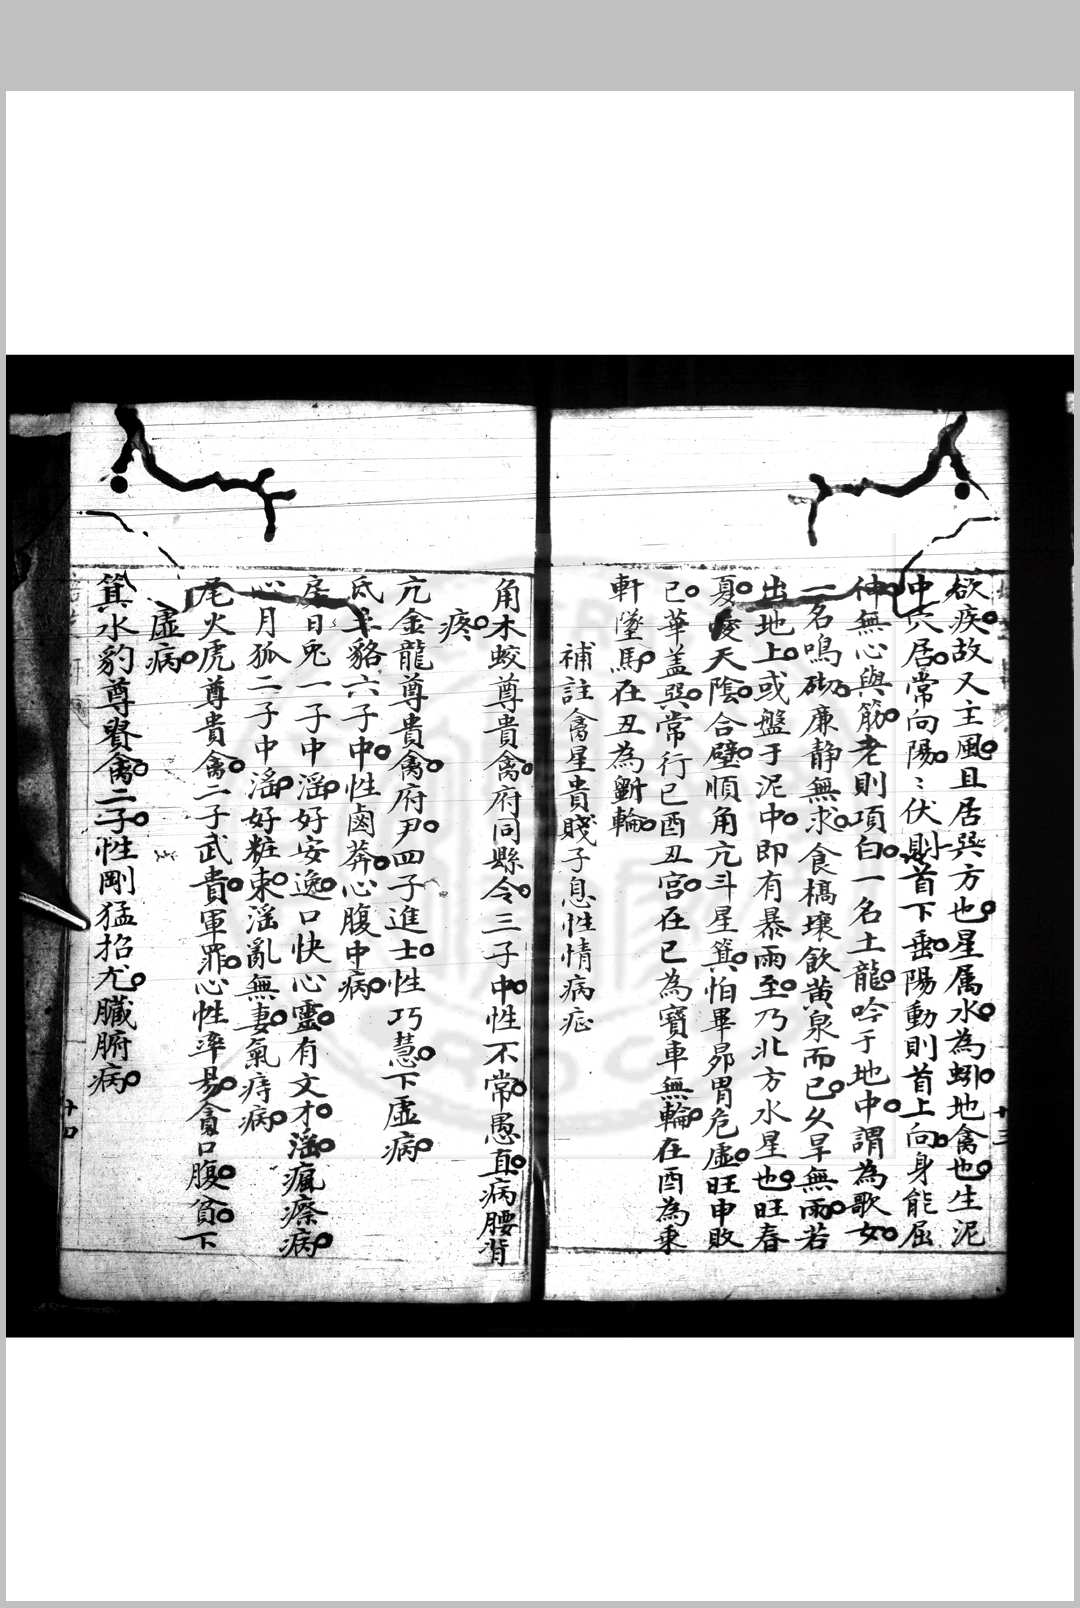 欲疾故又主風且居巽方也星属水為蚓地禽也生泥
中穴居常向陽〻伏則首下垂陽動則首上向身能屈
伸無心與筋老則項白一名土龍吟于地中謂為歌女
一名鳴砌廉静無求食槁壤飲黄泉而已久旱無雨若
出地上或盤于泥中即有暴雨至乃北方水星也旺春
夏愛天陰合璧順角亢斗星箕怕畢昴胃危虚旺申敗
已華盖巽常行巳酉丑宫在巳為寶車無輪在酉為乗
軒墜馬在丑為斷輪
補註禽星貴賤子息性情病症
角木蛟尊貴禽府同縣令三子中性不常愚直病腰背
疼
亢金龍尊貴禽府尹四子進士性巧慧下虚病
氐土貉六子中性鹵莽心腹中病
房日兎一子中滛好安逸口快心靈有文才滛瘋瘵病
心月狐二子中滛好粧束滛亂無妻氣痔病
尾火虎尊貴禽二子武貴軍罪心性率易貪口腹貧下
虚病
箕水豹尊貴禽二子性剛猛招尤臟腑病
十三
十四